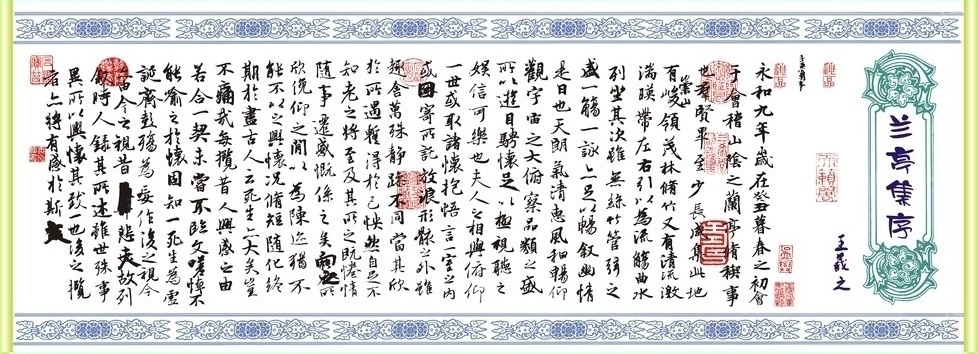 兰亭集序
王羲之
永和九年歲在癸丑暮春之初會
于會稽山陰之蘭亭脩稧事
也群賢畢至少長咸集此地
有崇山峻領茂林脩竹又有清流激
湍暎帶左右引以為流觴曲水
列坐其次雖無絲竹管弦之
盛一觴一詠亦足以暢敘幽情
是日也天朗氣清惠風和暢仰
觀宇宙之大俯察品類之盛
所以遊目騁懷足以極視聽之
娛信可樂也夫人之相與俯仰
一世或取諸懷抱悟言一室之內
或因寄所託放浪形骸之外雖
趣舍萬殊靜躁不同當其欣
於所遇暫得於己怏然自足不
知老之將至及其所之既惓情
隨事遷感慨係之矣向之所
欣俛仰之閒以為陳迹猶不
能不以之興懷況脩短隨化終
期於盡古人云死生亦大矣豈
不痛哉每攬昔人興感之由
若合一契未嘗不臨文嗟悼不
能喻之於懷固知一死生為虛
誕齊彭殤為妄作後之視今
亦由今之視昔悲夫故列
敘時人錄其所述雖世殊事
異所以興懷其致一也後之攬
者亦將有感於斯文